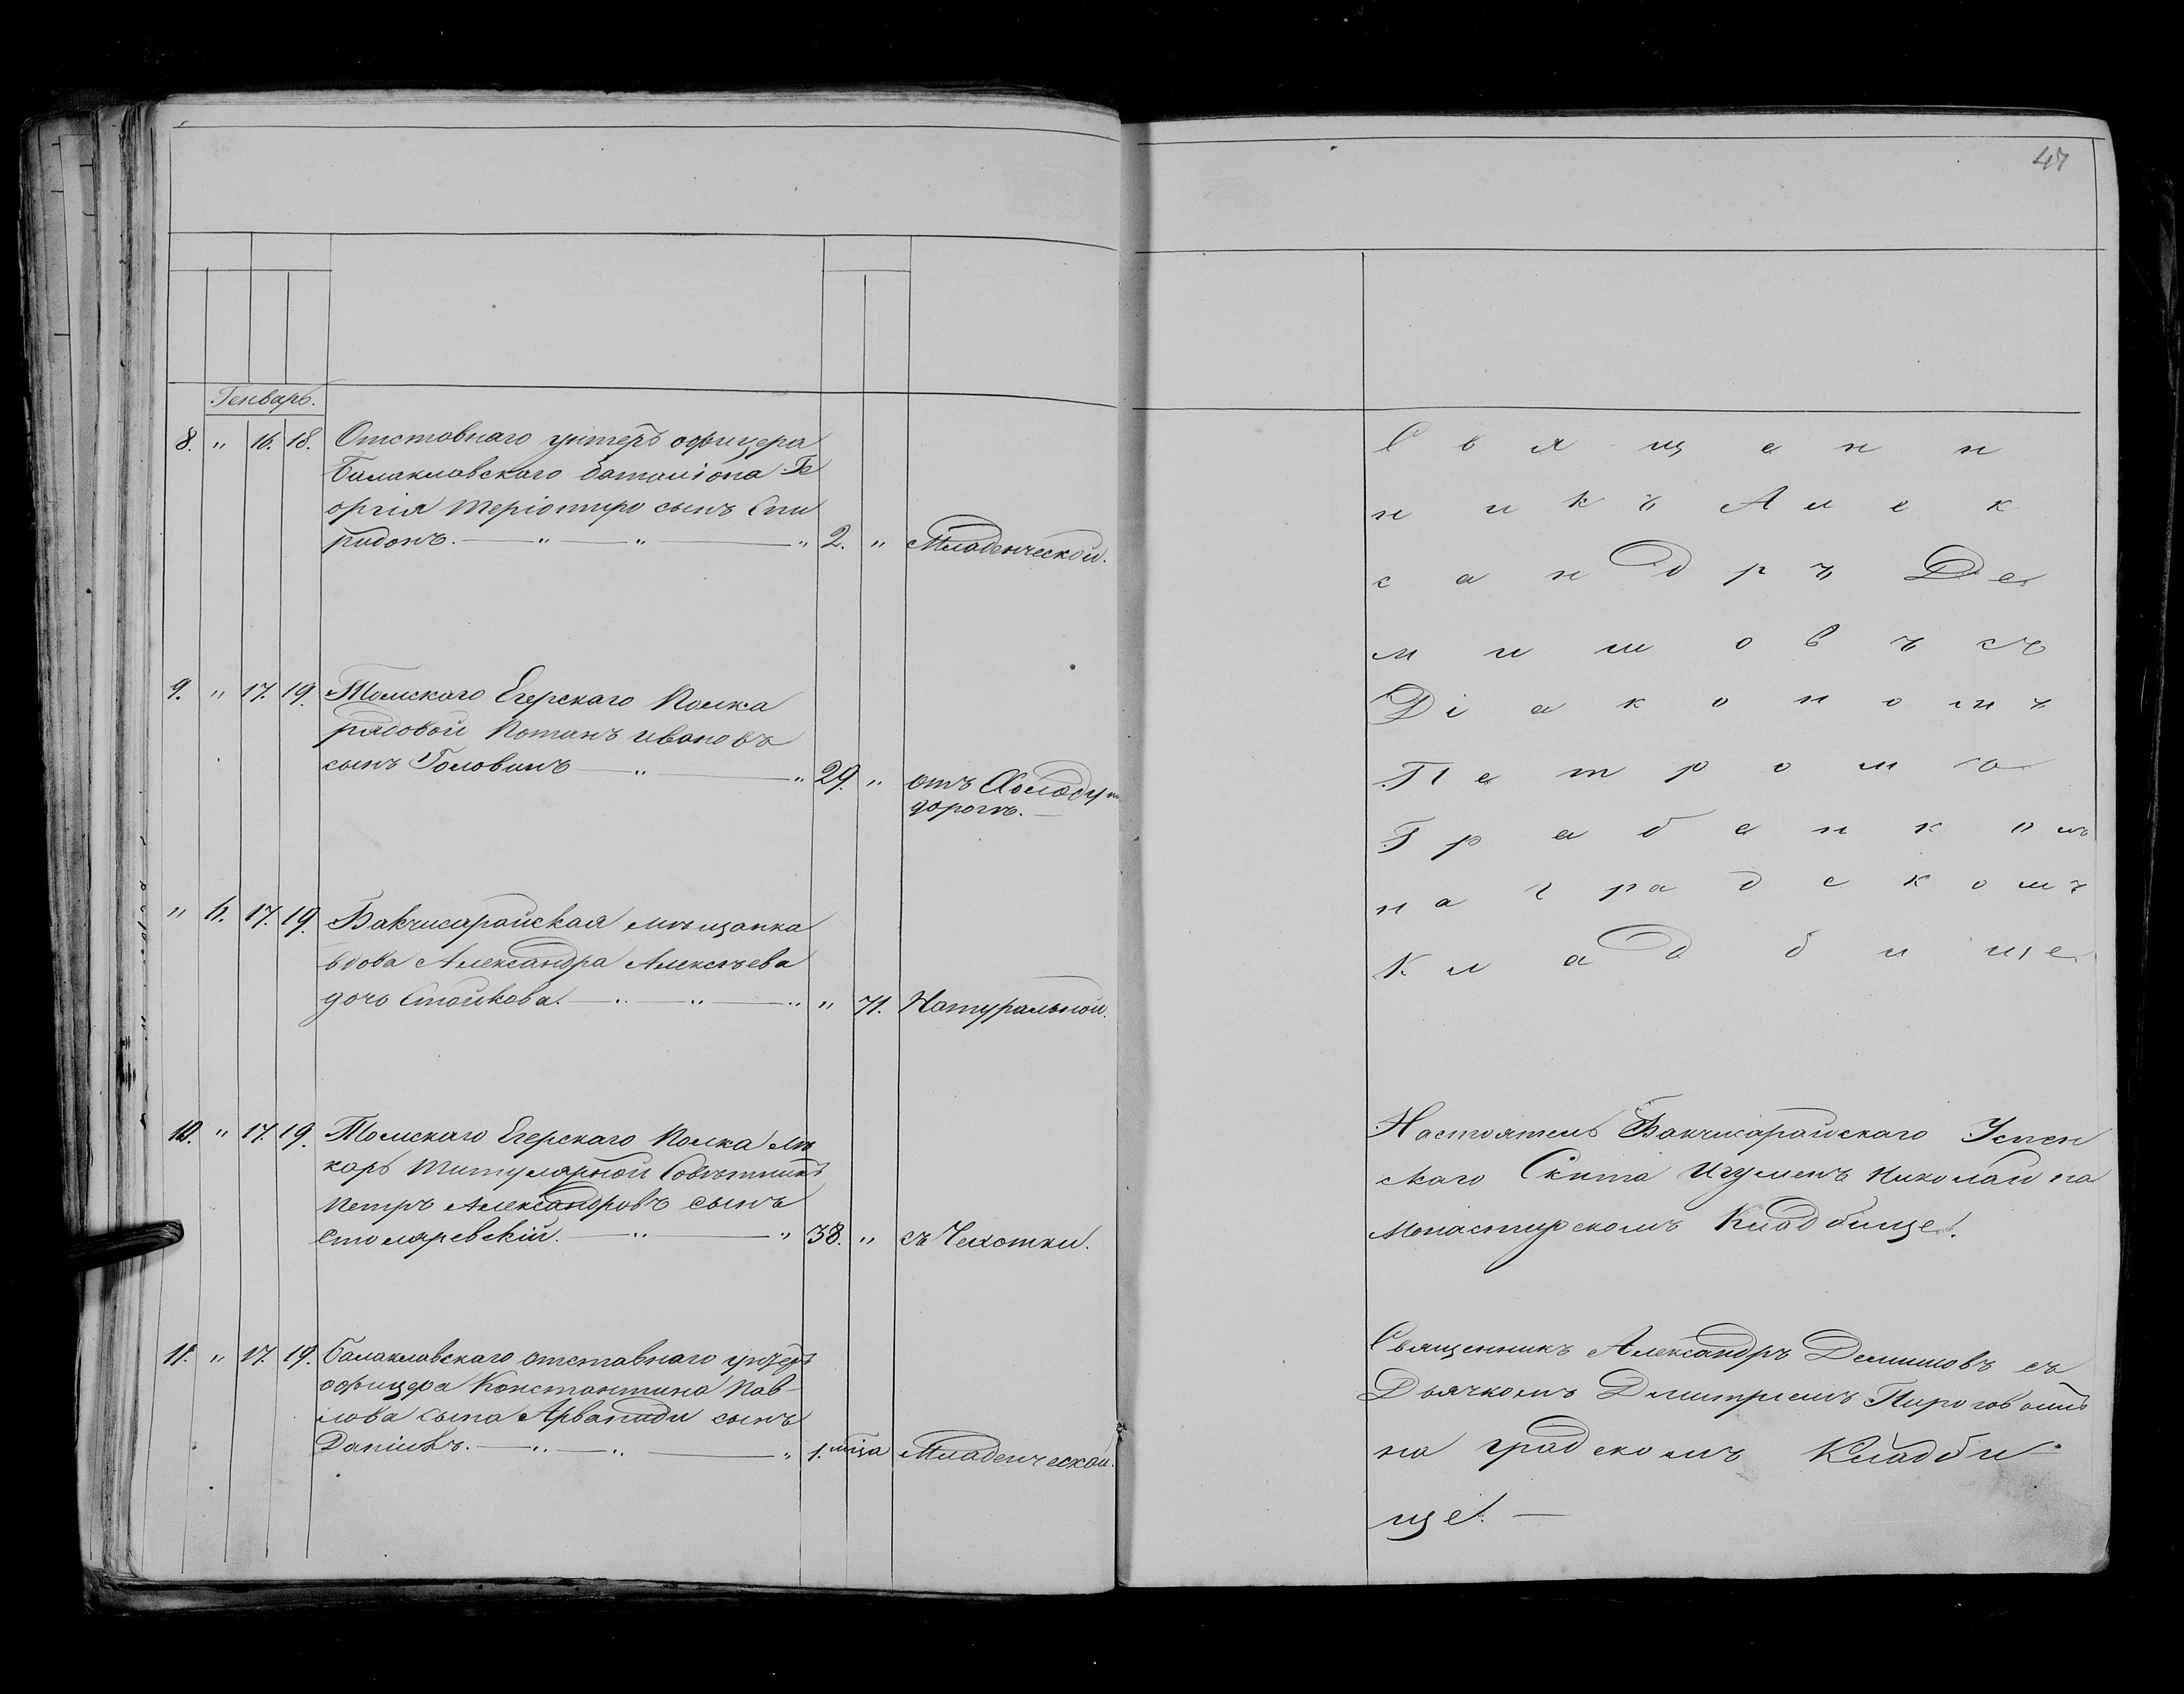 47
Генварь.
8. " 16. 18. Отставнаго унтеръ офицера
Балаклавскаго баталіона Ге
оргія Теріотиро сынъ Спи
ридонъ. — " — " — " 2. " Младенческой.
9. " 17. 19. Томскаго Егерскаго Полка
рядовой Потапъ Ивановъ
сынъ Головинъ — " — " 29. " отъ Холоду
дорогѣ. —
" 6. 17. 19. Бакчисарайская мѣщанка
вдова Александра Алексѣева
дочь Стойкова. — " — " — " " 71. Натуральной.
10. " 17. 19. Томскаго Егерскаго Полка лѣ
карь Титулярной Совѣтникъ
Петръ Александровъ сынъ
Столяревскій. — " — " 38. " съ Чехотки.
11. " 17. 19. Балаклавскаго отставнаго унтеръ
офицера Константина Пав-
лова сына Арваниди сынъ
Даніилъ. — " — " — " 1. мца Младенческой.
Священ
никъ Алек
сандръ Де
мишовъ съ
Діакономъ
Петромъ
Грабенком
на градскомъ
Кладбище
Настоятель Бакчисарайскаго Успен
скаго Скита Игуменъ Николай на
Монастирскомъ Кладбище.
Священникъ Александръ Демишовъ съ
Дьячкомъ Дмитріемъ Пироговымъ
на градскомъ Кладби
ще. —